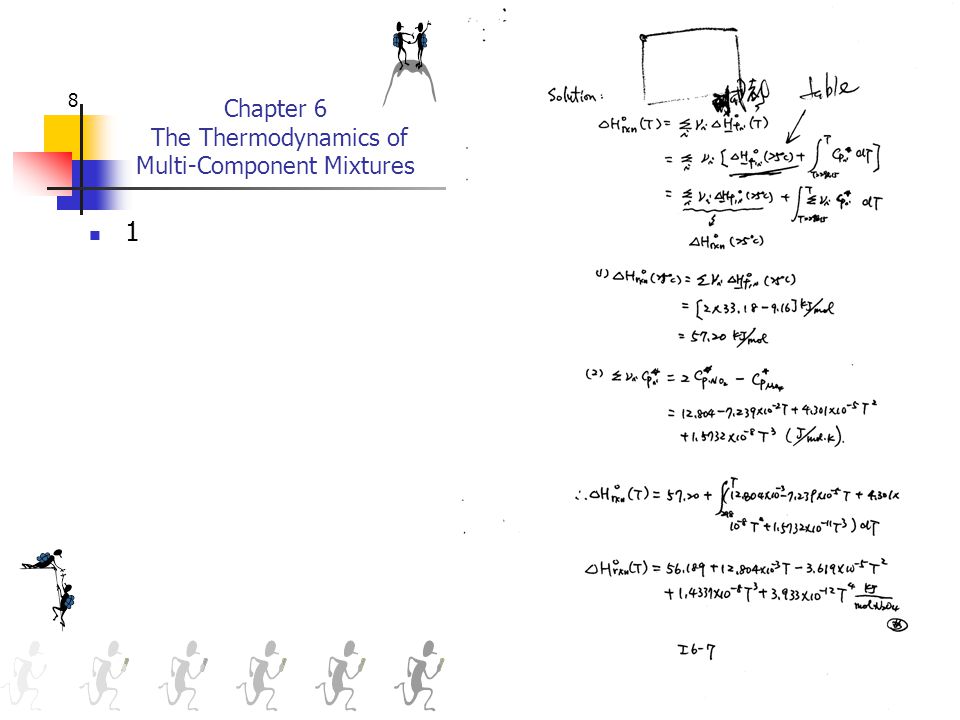 8
Chapter 6
The Thermodynamics of
Multi-Component Mixtures
1
Solution:
table
ΔH°rxn (T) = Σ νi ΔH°f,i (T)
= Σ νi [ΔH°f,i (25°C) + ∫T=298.15^T C*p,i dT]
= Σ νi ΔH°f,i (25°C) + ∫T=298.15^T Σ νi C*p,i dT
ΔH°rxn (25°C)
(1) ΔH°rxn (25°C) = Σ νi ΔH°f,i (25°C)
= [2×33.18-9.16] kJ/mol
= 57.20 kJ/mol
(2) Σ νi C*p,i = 2 C*p,NO₂ - C*p,N₂O₄
= 12.804-7.239×10⁻²T+4.301×10⁻⁵T²
+1.5732×10⁻⁸T³ (J/mol·K).
∴ ΔH°rxn (T) = 57.20 + ∫298^T (12.804×10⁻³-7.239×10⁻⁵T + 4.301×
10⁻⁸T²+1.5732×10⁻¹¹T³) dT
ΔH°rxn (T) = 56.189+12.804×10⁻³T-3.619×10⁻⁵T²
+1.4337×10⁻⁸T³+3.933×10⁻¹²T⁴ kJ/mol N₂O₄
I6-7